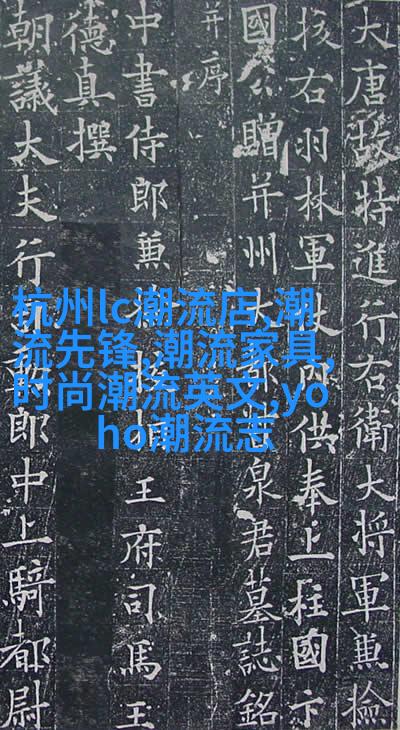 大唐故特進行右衛大將軍兼撿
挍右羽林軍仗內供奉上柱國卞
國公贈并州大都督泉君墓誌銘
并序
中書侍郎兼撿挍相王府司馬王
德真撰
朝議大夫行郎中上騎都尉
杭州lc潮流店,潮
流先锋,潮流家具,
时尚潮流英文,yo
ho潮流志